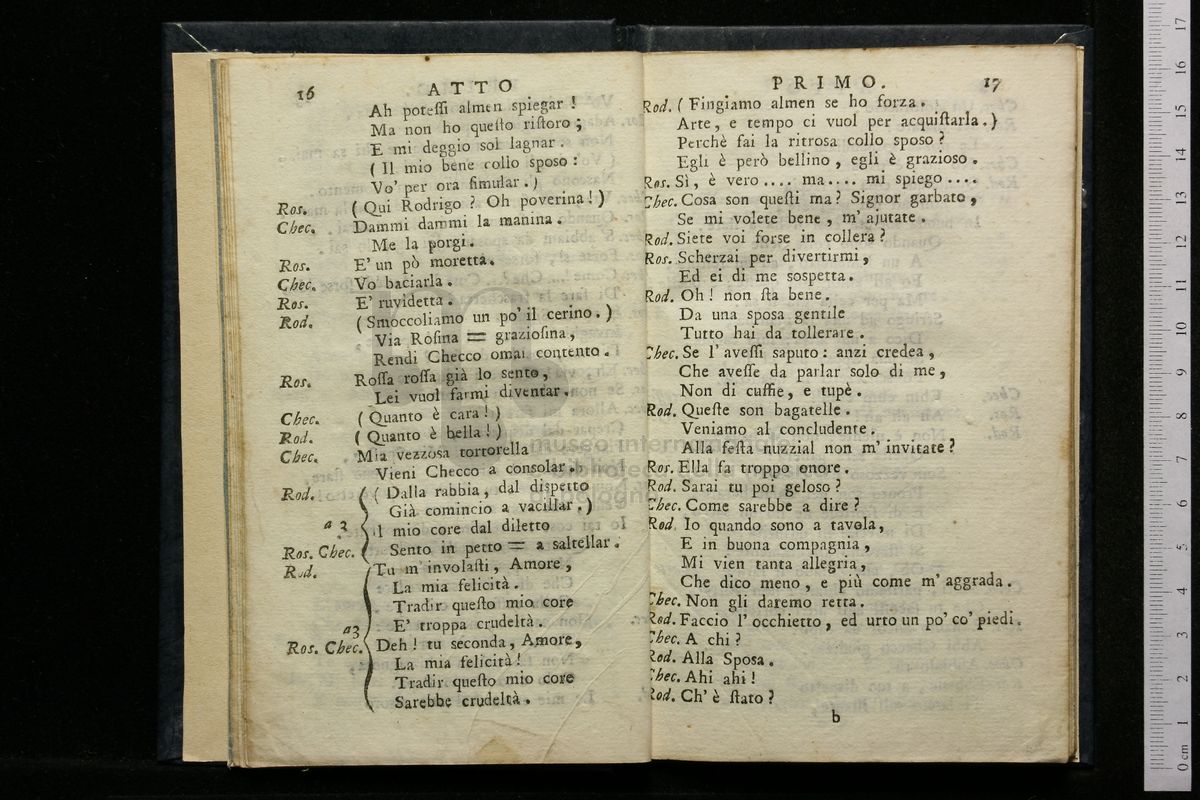 16 ATTO
Ah potessi almen spiegar !
Ma non ho questo ristoro ;
E mi deggio sol lagnar .
( Il mio bene collo sposo :
Vo' per ora simular . )
Ros. ( Qui Rodrigo ? Oh poverina ! )
Chec. Dammi dammi la manina .
Me la porgi .
Ros. E' un pò moretta .
Chec. Vo' baciarla .
Ros. E' ruvidetta .
Rod. ( Smoccoliamo un po' il cerino . )
Via Rosina = graziosina ,
Rendi Checco omai contento .
Ros. Rossa rossa già lo sento ,
Lei vuol farmi diventar .
Chec. ( Quanto è cara ! )
Rod. ( Quanto è bella ! )
Chec. Mia vezzosa tortorella
Vieni Checco a consolar .
Rod. ( Dalla rabbia , dal dispetto
Già comincio a vacillar . )
a 3
Il mio core dal diletto
Ros. Chec. Sento in petto = a saltellar .
Rod. Tu m' involasti , Amore ,
La mia felicità .
Tradir questo mio core
E' troppa crudeltà .
a 3
Ros. Chec. Deh ! tu seconda , Amore ,
La mia felicità !
Tradir questo mio core
Sarebbe crudeltà .
PRIMO. 17
Rod. ( Fingiamo almen se ho forza .
Arte , e tempo ci vuol per acquistarla . )
Perchè fai la ritrosa collo sposo ?
Egli è però bellino , egli è grazioso .
Ros. Sì , è vero .... ma .... mi spiego ....
Chec. Cosa son questi ma ? Signor garbato ,
Se mi volete bene , m' ajutate .
Rod. Siete voi forse in collera ?
Ros. Scherzai per divertirmi ,
Ed ei di me sospetta .
Rod. Oh ! non sta bene .
Da una sposa gentile
Tutto hai da tollerare .
Chec. Se l' avessi saputo : anzi credea ,
Che avesse da parlar solo di me ,
Non di cuffie , e tupè .
Rod. Queste son bagatelle .
Veniamo al concludente .
Alla festa nuzzial non m' invitate ?
Ros. Ella fa troppo onore .
Rod. Sarai tu poi geloso ?
Chec. Come sarebbe a dire ?
Rod. Io quando sono a tavola ,
E in buona compagnia ,
Mi vien tanta allegria ,
Che dico meno , e più come m' aggrada .
Chec. Non gli daremo retta .
Rod. Faccio l' occhietto , ed urto un po' co' piedi .
Chec. A chi ?
Rod. Alla Sposa .
Chec. Ahi ahi !
Rod. Ch' è stato ?
b